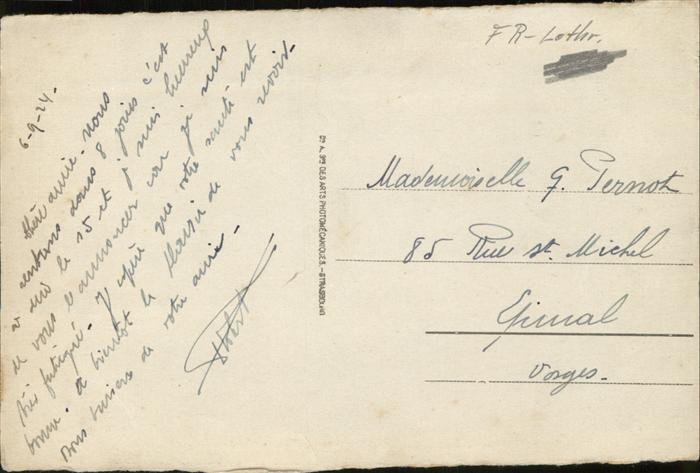 6-9-24.
Chère amie. Nous
rentrons dans 8 jours c'est
à dire le 15 et suis heureux
de vous l'annoncer car je suis
très fatigué. J'espère que votre santé est
bonne. A bientôt le plaisir de vous revoir.
Bons baisers de votre amie.
FR-Lothr.
Sté A. Sne DES ARTS PHOTOMÉCANIQUES.-STRASBOURG
Mademoiselle G. Pernot
85 Rue St. Michel
Epinal
Vosges.